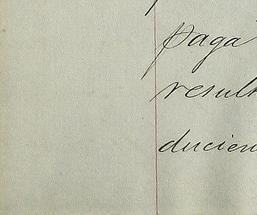 paga
result
ducien